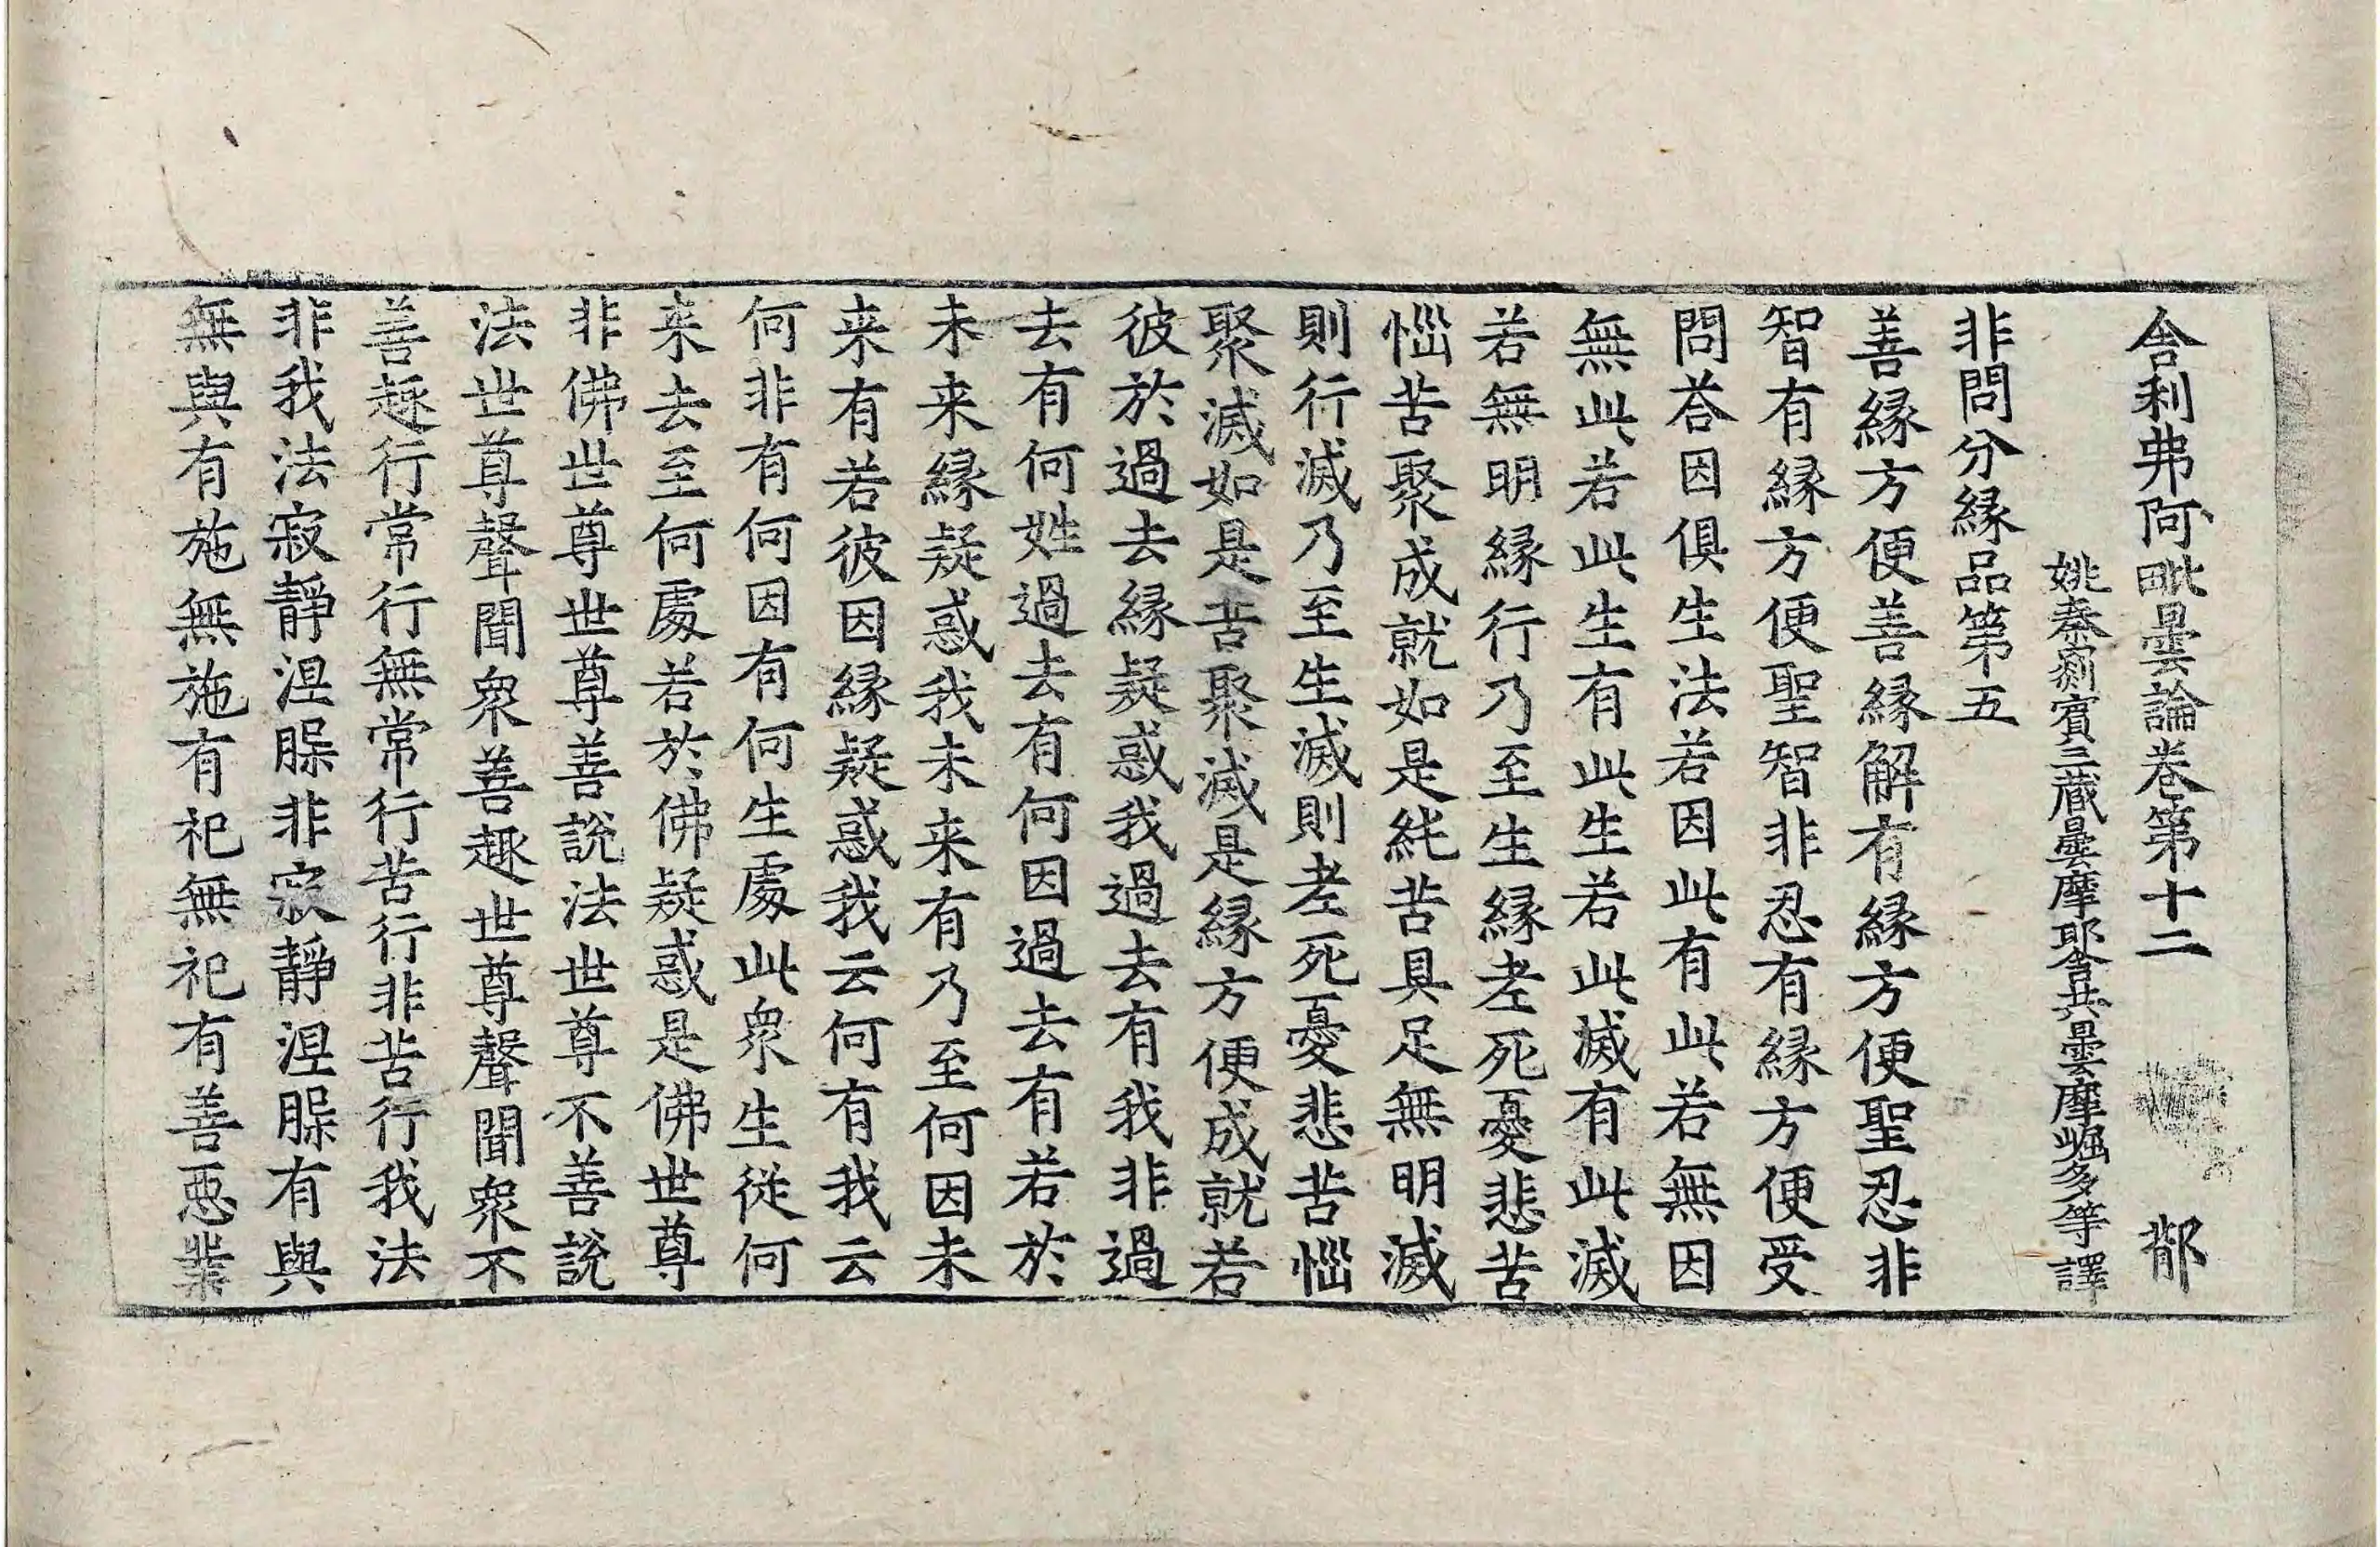 舍利弗阿毗曇論卷第十二　　郁
姚秦罽賓三藏曇摩耶舍共曇摩崛多等譯
非問分緣品第五
善緣方便善緣解有緣方便聖忍非
智有緣方便聖智非忍有緣方便受
問荅因俱生法若因此有此若無因
無此若此生有此生若此滅有此滅
若無明緣行乃至生緣老死憂悲苦
惱苦聚成就如是純苦具足無明滅
則行滅乃至生滅則老死憂悲苦惱
聚滅如是苦聚滅是緣方便成就若
彼於過去緣疑惑我過去有我非過
去有何姓過去有何因過去有若於
未来緣疑惑我未来有乃至何因未
来有若彼因緣疑惑我云何有我云
何非有何因有何生處此衆生從何
来去至何處若於佛疑惑是佛世尊
非佛世尊世尊善說法世尊不善說
法世尊聲聞衆善趣世尊聲聞衆不
善趣行常行無常行苦行非苦行我法
非我法寂靜涅槃非寂靜涅槃有與
無與有施無施有祀無祀有善惡業